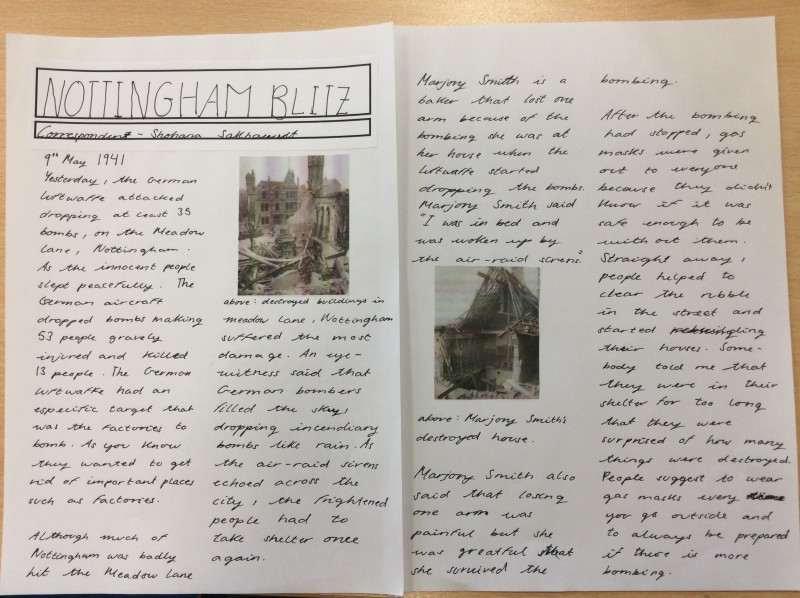 NOTTINGHAM BLITZ
Correspondent - Shohana
9th May 1941
Yesterday, the German
luftwaffe attacked
dropping at least 35
bombs, on the Meadow
Lane, Nottingham.
As the innocent people
slept peacefully. The
German aircraft
dropped bombs making
53 people gravely
injured and killed
13 people. The German
luftwaffe had an
especific target that
was the factories to
bomb. As you know
they wanted to get
rid of important places
such as factories.
Although much of
Nottingham was badly
hit the Meadow Lane
above: destroyed buildings in
meadow lane, Nottingham
suffered the most
damage. An eye-
witness said that
German bombers
filled the sky,
dropping incendiary
bombs like rain. As
the air-raid sirens
echoed across the
city, the frightened
people had to
take shelter once
again.
Marjory Smith is a
baker that lost one
arm because of the
bombing she was at
her house when the
luftwaffe started
dropping the bombs.
Marjory Smith said
"I was in bed and
was woken up by
the air-raid sirens."
above: Marjory Smith's
destroyed house.
Marjory Smith also
said that losing
one arm was
painful but she
was greatful that
she survived the
bombing.
After the bombing
had stopped, gas
masks were given
out to everyone
because they didn't
know if it was
safe enough to be
with out them.
Straight away,
people helped to
clear the rubble
in the street and
started
their houses. Some-
body told me that
they were in their
shelter for too long
that they were
surprised of how many
things were destroyed.
People suggest to wear
gas masks every
you go outside and
to always be prepared
if there is more
bombing.